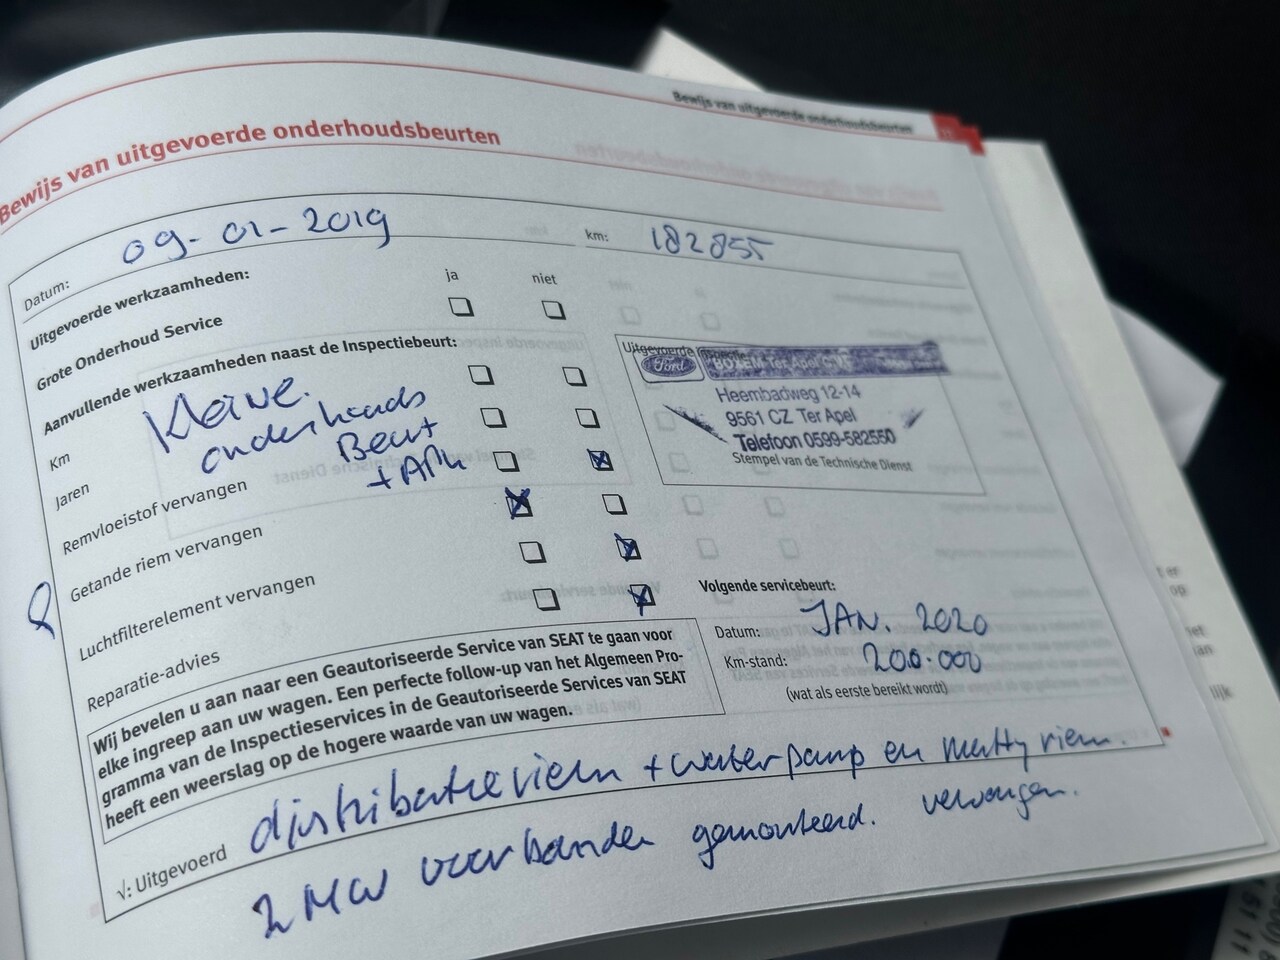 Bewijs van uitgevoerde onderhoudsbeurten
Bewijs van uitgevoerde onderhoudsbeurten
Datum: 09-01-2019 km: 182855
Uitgevoerde werkzaamheden: ja niet
Grote Onderhoud Service
Aanvullende werkzaamheden naast de Inspectiebeurt:
Kleine
onderhouds
Beurt
+ APK
Km
Jaren
Remvloeistof vervangen
Getande riem vervangen
Luchtfilterelement vervangen
Reparatie-advies
Uitgevoerde
Ford
Heembadweg 12-14
9561 CZ Ter Apel
Telefoon 0599-582550
Stempel van de Technische Dienst
Volgende servicebeurt:
Datum: JAN. 2020
Km-stand: 200.000
(wat als eerste bereikt wordt)
Wij bevelen u aan naar een Geautoriseerde Service van SEAT te gaan voor
elke ingreep aan uw wagen. Een perfecte follow-up van het Algemeen Pro-
gramma van de Inspectieservices in de Geautoriseerde Services van SEAT
heeft een weerslag op de hogere waarde van uw wagen.
√: Uitgevoerd distributieriem + waterpomp en multy riem.
vervangen.
2 NW voorbanden gemonteerd.